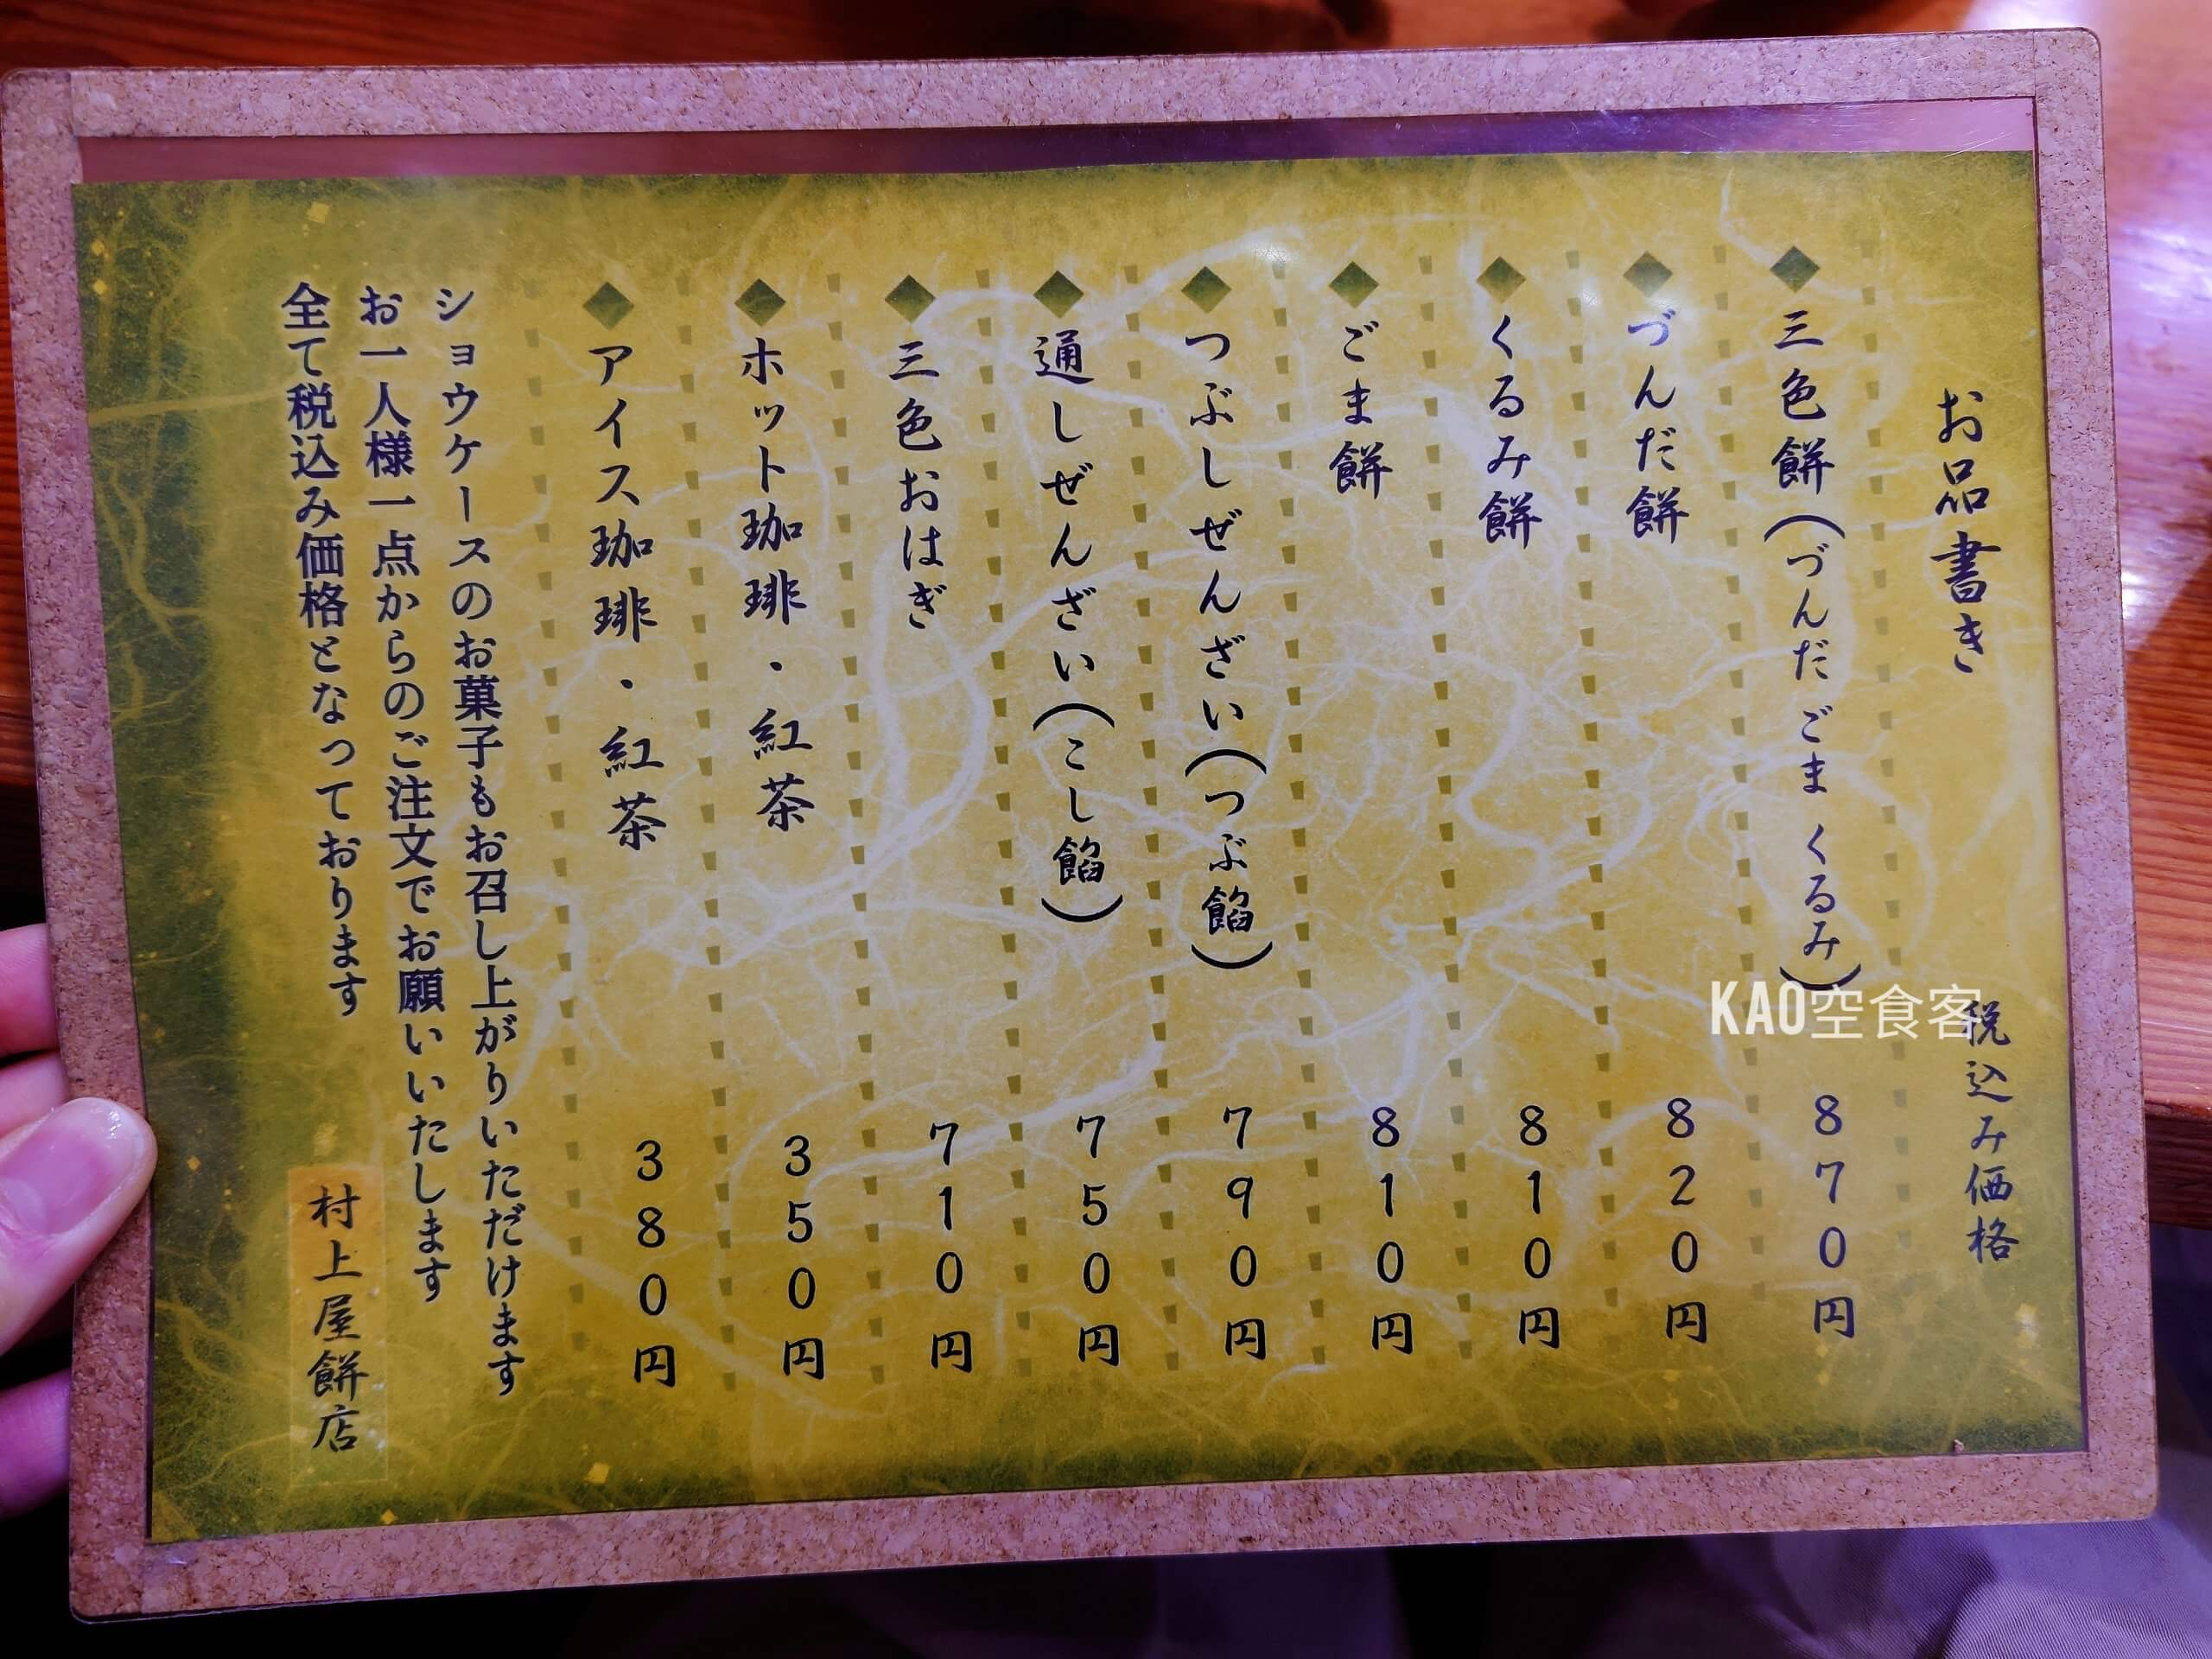 お品書き 税込み価格
◆三色餅(づんだ ごま くるみ) 870円
◆づんだ餅 820円
◆くるみ餅 810円
◆ごま餅 810円
◆つぶしぜんざい(つぶ餡) 790円
◆通しぜんざい(こし餡) 750円
◆三色おはぎ 710円
◆ホット珈琲・紅茶 350円
◆アイス珈琲・紅茶 380円
ショウケースのお菓子もお召し上がりいただけます
お一人様一点からのご注文でお願いいたします
全て税込み価格となっております
村上屋餅店
KAO空食客